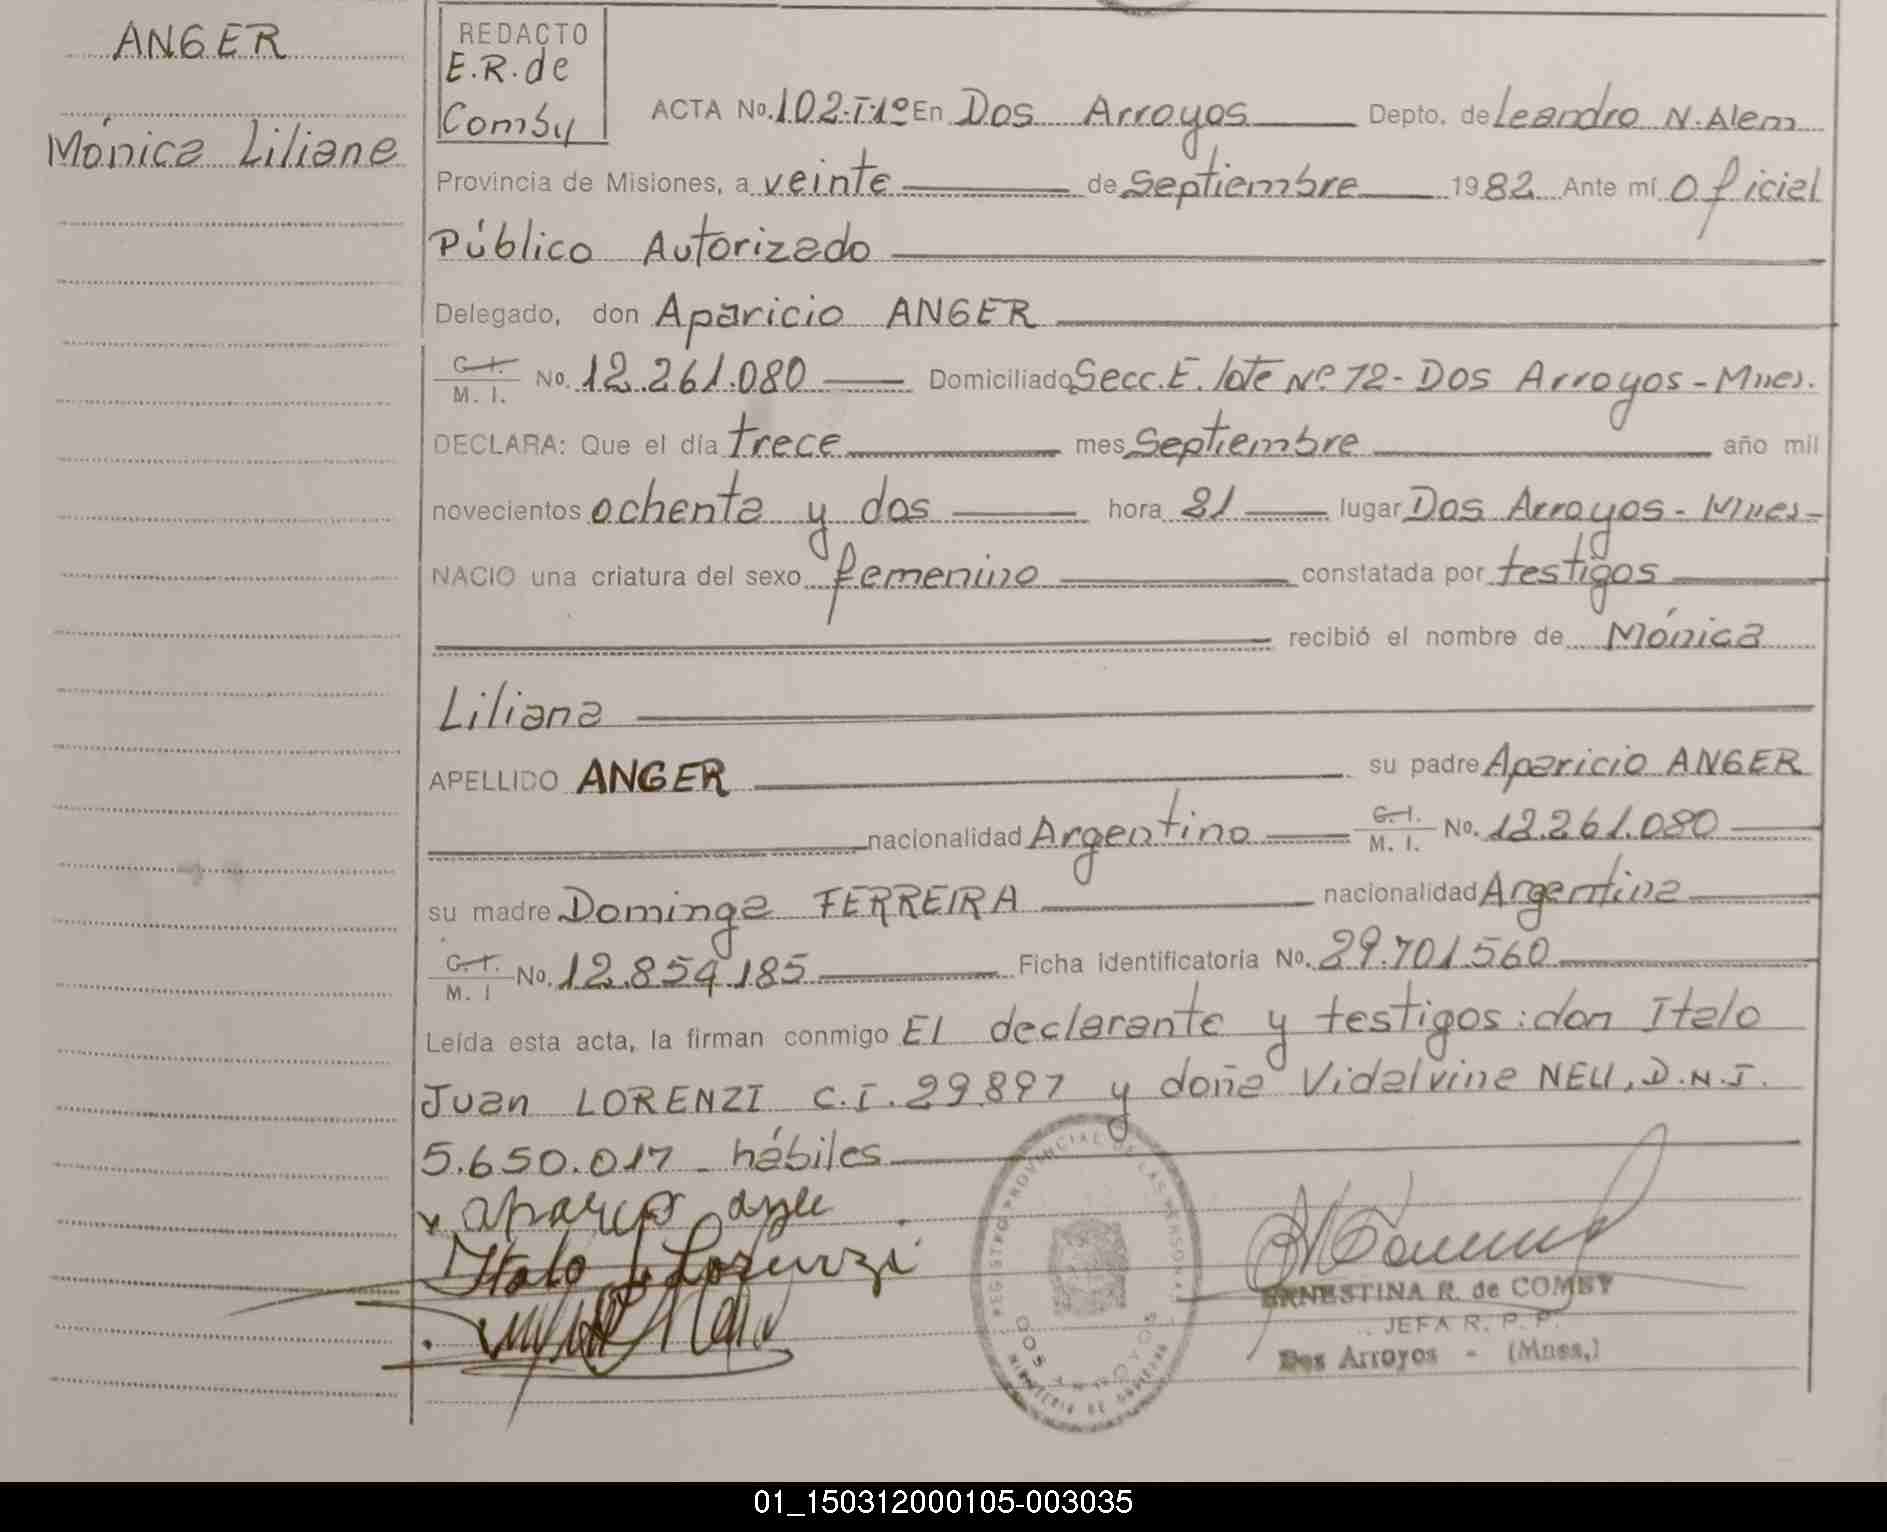 ANGER
Mónica Liliana
REDACTO
E.R. de
Comby
ACTA No. 102-T·1º En Dos Arroyos Depto. de Leandro N. Alem
Provincia de Misiones, a veinte de Septiembre 1982 Ante mí Oficial
Público Autorizado
Delegado, don Aparicio ANGER
C. I. M. I. No. 12.261.080 Domiciliado Secc. E. lote Nº 72 - Dos Arroyos - Mnes.
DECLARA: Que el día trece mes Septiembre año mil
novecientos ochenta y dos hora 21 lugar Dos Arroyos - Mnes-
NACIO una criatura del sexo femenino constatada por testigos
recibió el nombre de Mónica
Liliana
APELLIDO ANGER su padre Aparicio ANGER
nacionalidad Argentino C. I. M. I. No. 12.261.080
su madre Dominga FERREIRA nacionalidad Argentina
C. I. M. I No. 12.854.185 Ficha identificatoria No. 29.701.560
Leída esta acta, la firman conmigo El declarante y testigos: don Italo
Juan LORENZI C.I. 29.897 y doña Vidalvina NEU, D.N.I.
5.650.017 - hábiles
Italo J Lorenzi
REGISTRO PROVINCIAL DE LAS PERSONAS
DOS ARROYOS
MINISTERIO DE GOBIERNO
ERNESTINA R. de COMBY
JEFA R. P. P.
Dos Arroyos - (Mnes.)
01_150312000105-003035